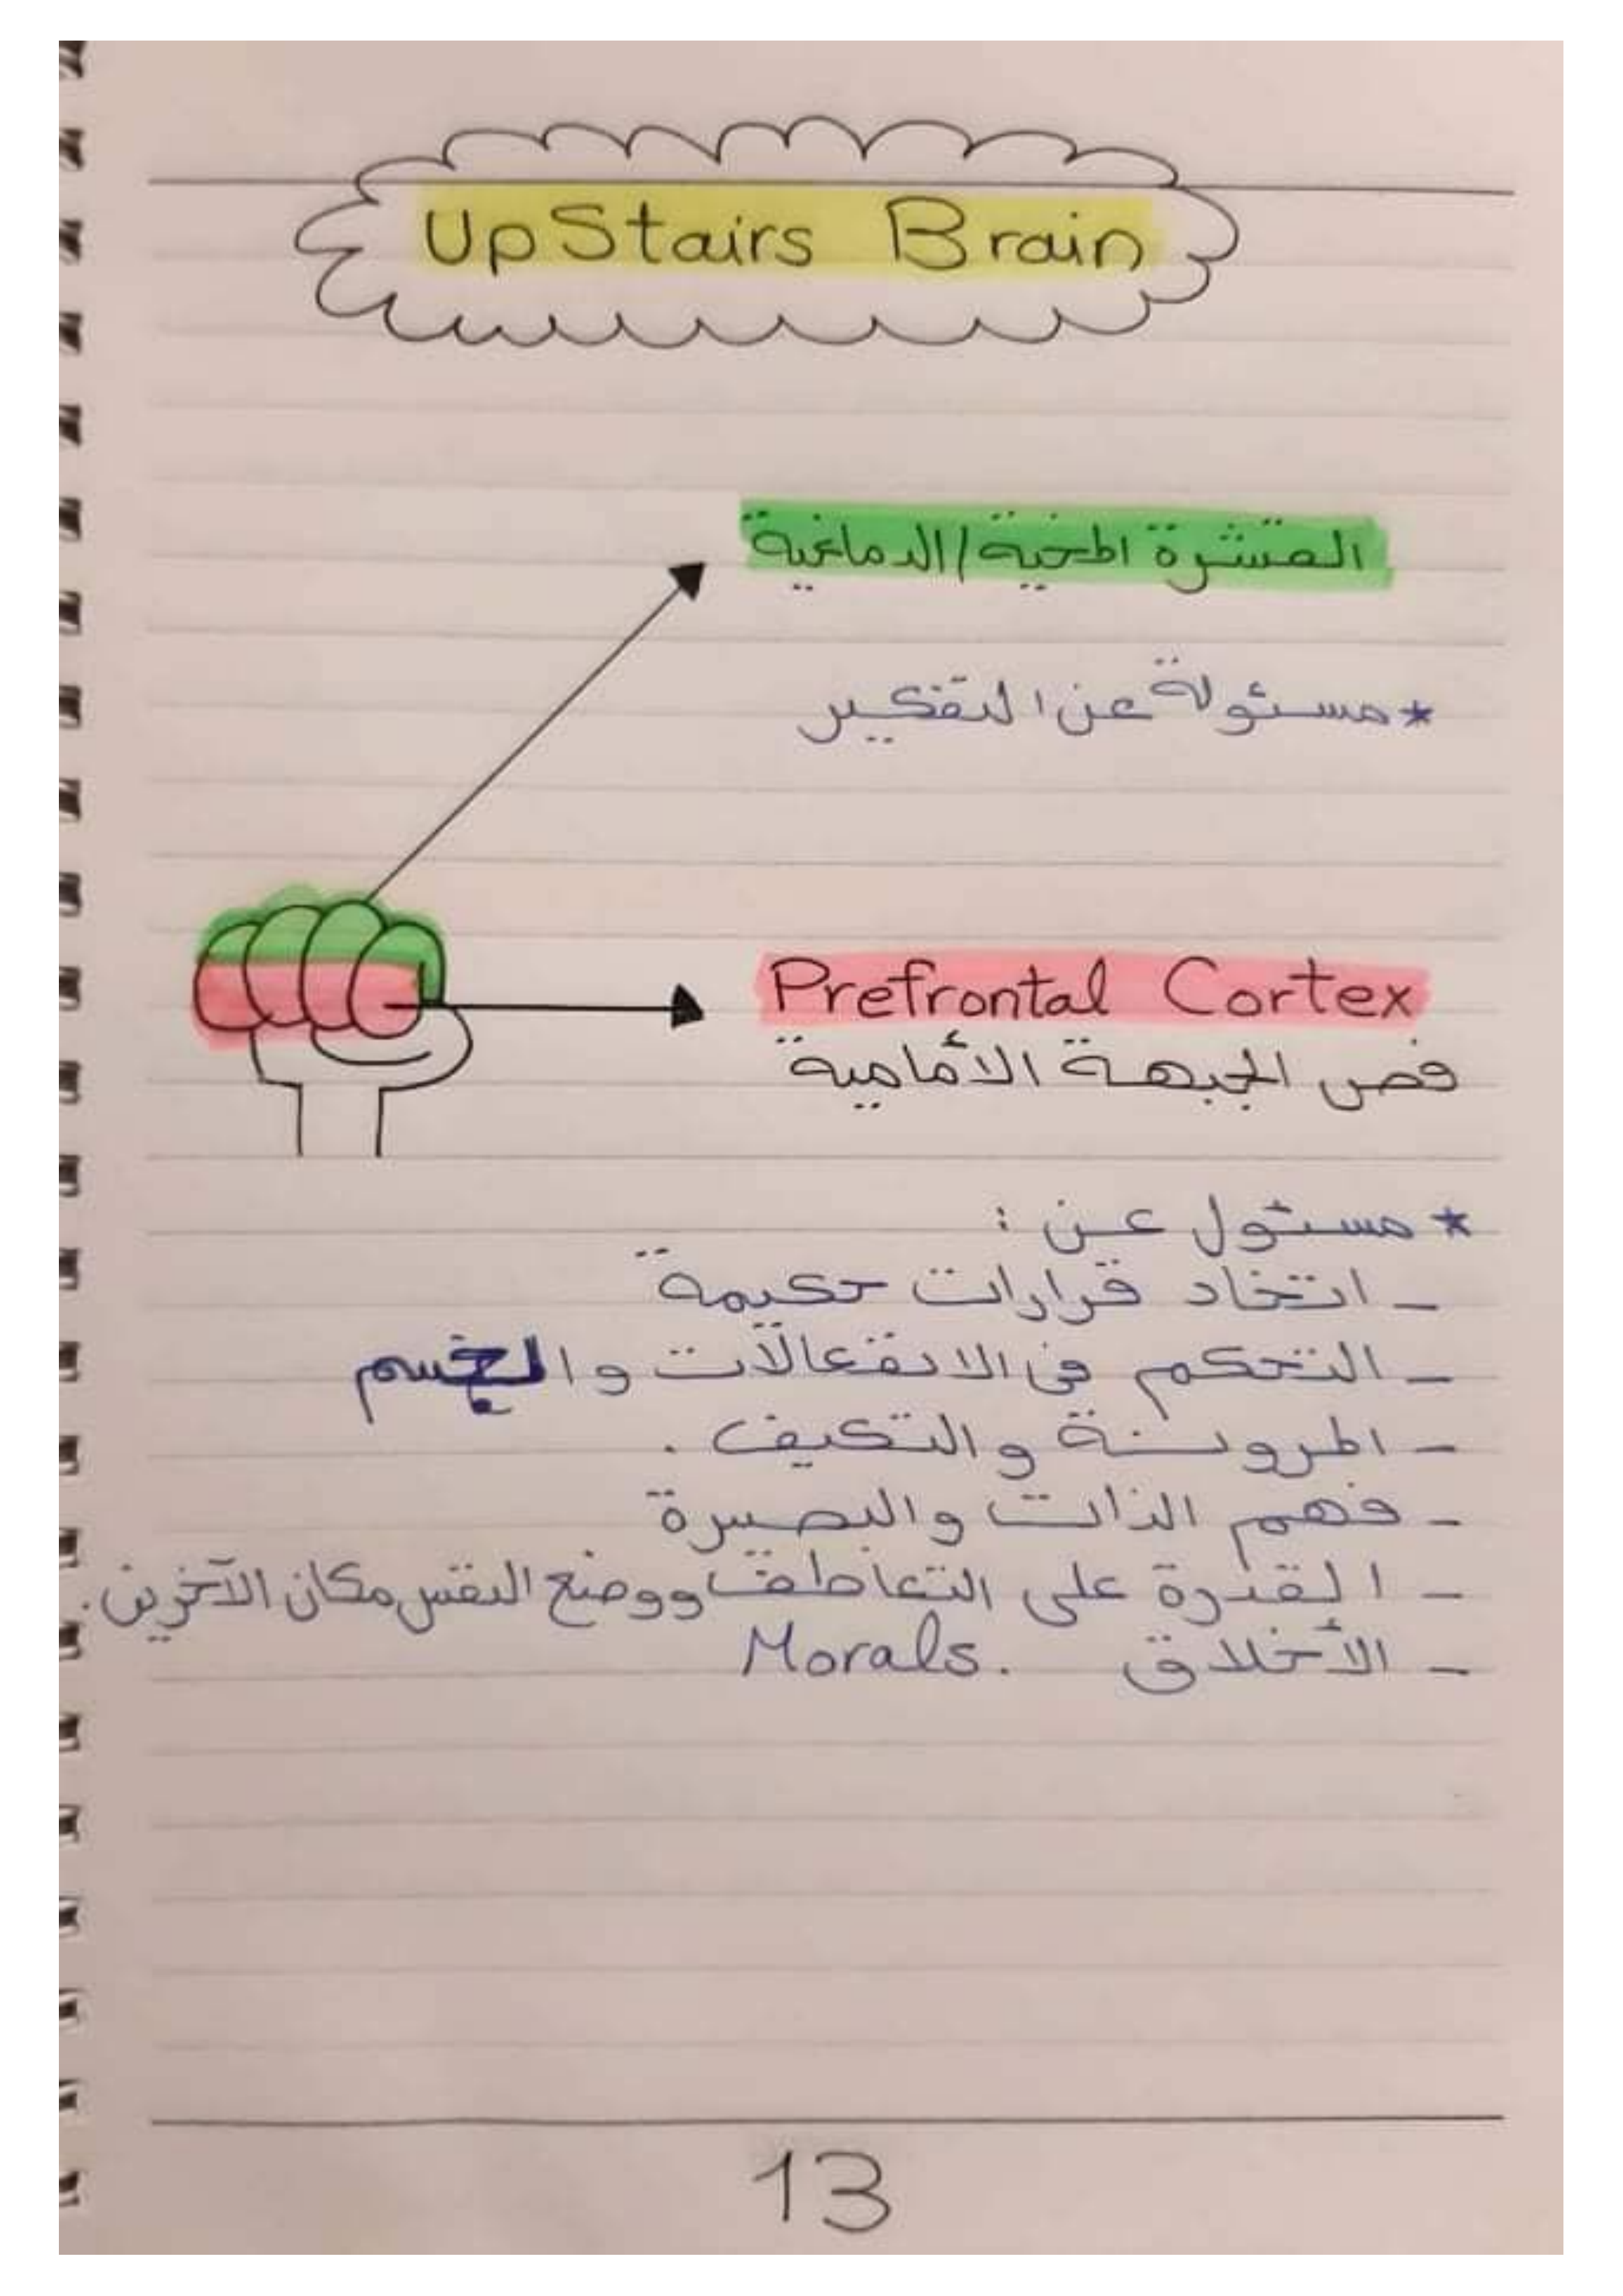 UpStairs Brain
القشرة المخية/الدماغية
* مسئولة عن التفكير
Prefrontal Cortex
فص الجبهة الأمامية
* مسئول عن :
- اتخاد قرارات حكيمة
- التحكم فى الانفعالات والجسم
- المرونة والتكيف .
- فهم الذات والبصيرة
- القدرة على التعاطف ووضع النفس مكان الآخرين .
- الأخلاق Morals.
13